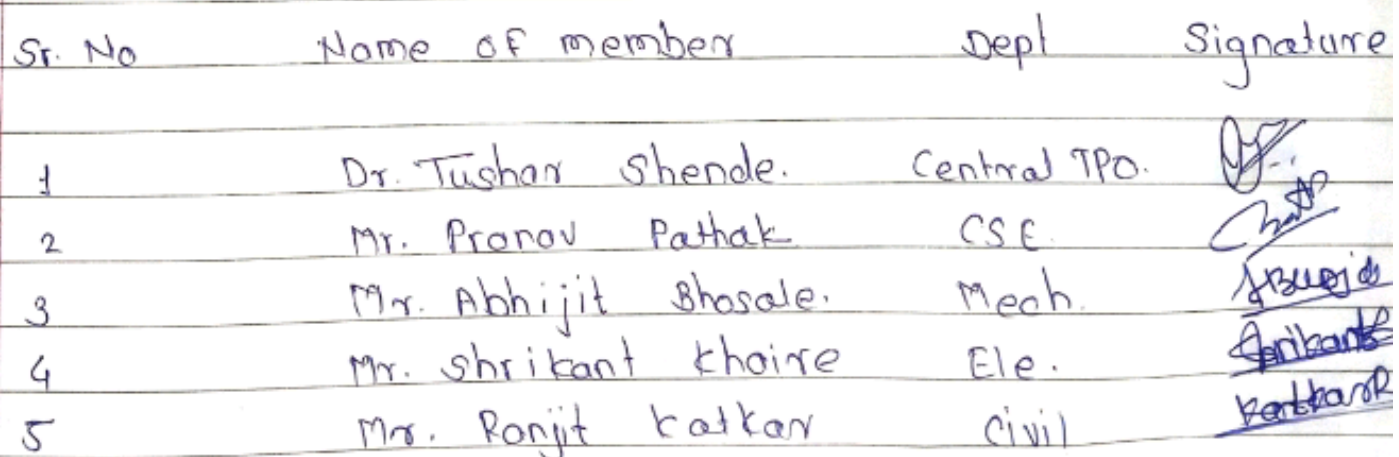 Sr. No Name of member Dept Signature
1 Dr. Tushar Shende. Central TPO.
2 Mr. Pranav Pathak CSE
3 Mr. Abhijit Bhosale. Mech.
4 Mr. Shrikant Khaire Ele. Shrikant
5 Mr. Ranjit Katkar Civil KatkarR